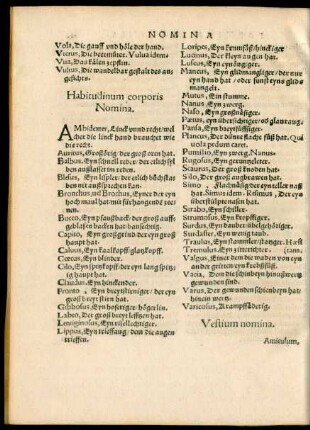 NOMINA
Vola, Die gauff vnd hole der hand.
Vterus, Die beermůter. Vulua idem.
Vua, Das
Vultus, Die wandelbar gestalt des an-
gesichts.
Habitudinum corporis
Nomina.
AMbidexter, Linck vnnd recht, wel-
cher die linck hand brauchet wie
die recht.
Auritus, Großörig: der groß oren hat.
Balbus, Eyn schnell reder: der etlich syl-
ben außlasset im reden.
Blesus, Eyn lispler: der etlich bůchstaben
nit mag außsprechen kan.
Bronchus, vel Brochus, Eyner der eyn
hoch maul hat mit fürhangende zee-
nen.
Bucco, Eyn pfausback: der groß auff-
geblasen backen hat
Capito, Eyn großgrind der eyn groß
haupt hat.
Caluus, Eyn kaalkopff: glatzkopff.
Cœcus, Eyn blinder.
Cilo, Eyn spitzkopff: der eyn lang spitz-
ig haupt hat.
Claudus, Eyn hinckender.
Fronto, Eyn breytstirniger, der eyn
groß breyt stirn hat.
Gibbosus, Eyn hofereter: högerlin.
Labeo, Der groß leffzen hat.
Lentiginosus, Eyn riselechtiger.
Lippus, Eyn trieffaug, dem die augen
trieffen.
Loripes, Eyn krumfüß, hinckiger
Lucinus, Der kleyn augen hat.
Luscus, Eyn eynöugiger.
Mancus, Eyn glidmangliger, der nur
eyn hand hat, oder sunst eyns glids
mangelt.
Mutus, Eyn stumme.
Nanus, Eyn zwerg.
Naso, Eyn großnäsiger.
Pætus, Eyn übersichtiger, oß glauraug.
Pansa, Eyn breytfüssiger.
Plancus, Der ebne flache füß hat. Qui
uola pedum caret.
Pumilio, Eyn zwerg. Nanus.
Rugosus, Eyn gerunzleter.
Scaurus, Der groß knoden hat.
Silo, Der groß augbrawen hat.
Simo, Flachnäsig der eyn teller naß
hat. Simus idem. Resimus, Der eyn
überstülpte nasen hat.
Strabo, Eyn schiller.
Strumosus, Eyn kropffiger.
Surdus, Eyn dauber: übelghöriger.
Surdaster, Eyn wenig taub.
Traulus, Eyn stammler, stanger. Hæsi-
Tremulus, Eyn zitterechter. (tans.
Valgus, Einer dem die waden von eyn
ander geiren: eyn kechfüssig.
Vacia, Den die schinbeyn einwerts
ghond.
Varus, Der gewunden schienbeyn hat:
hinein wertz.
Varicosus, Krampffäderig.
Vestium nomina.
Amiculum,